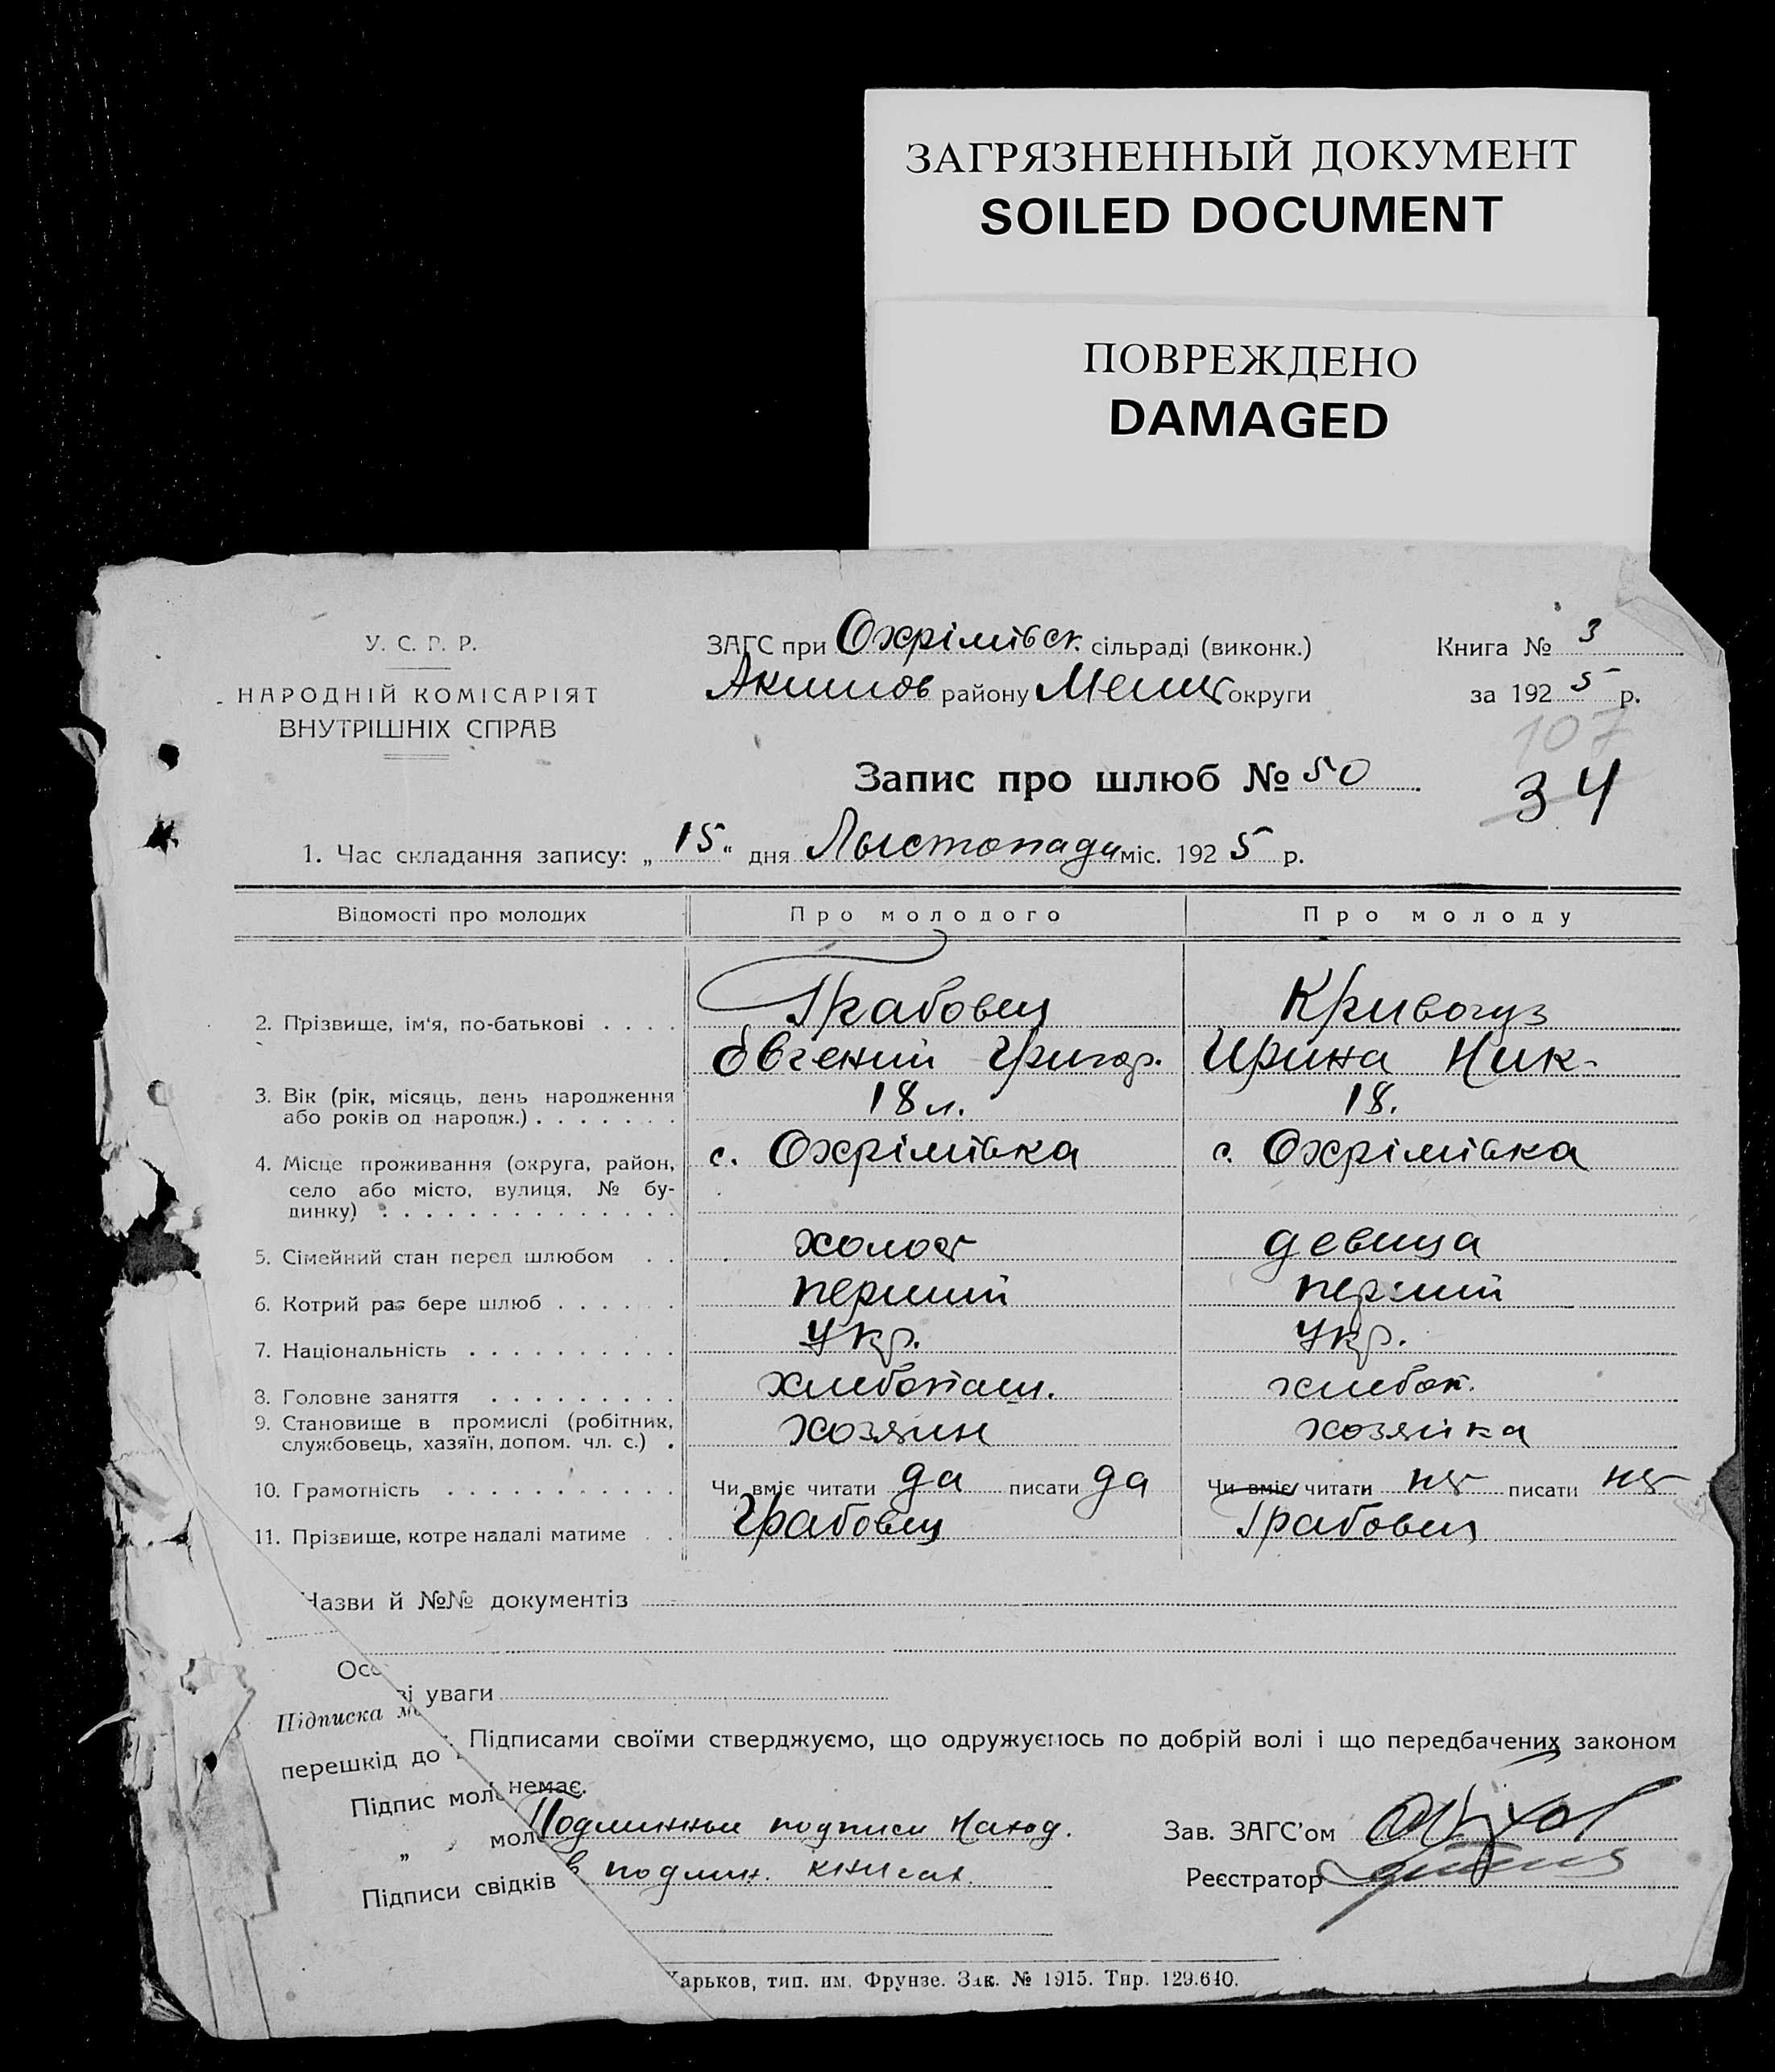 ЗАГРЯЗНЕННЫЙ ДОКУМЕНТ
SOILED DOCUMENT
ПОВРЕЖДЕНО
DAMAGED
У. С. Р. Р.
НАРОДНІЙ КОМІСАРІЯТ
ВНУТРІШНІХ СПРАВ
ЗАГС при Охрімівск. сільраді (виконк.)
Акимов району Мелит округи
Книга № 3
за 1925 р.
107
34
Запис про шлюб № 50
1. Час складання запису: „15“ дня Лыстопада міс. 1925 р.
Відомості про молодих Про молодого Про молоду
2. Прізвище, ім'я, по-батькові . . . . Грабовец Кривогуз
Євгений Григор. Ирина Ник-
3. Вік (рік, місяць, день народження
або років од народж.) . . . . . . . 18 л. 18.
4. Місце проживання (округа, район, с. Охрімівка с. Охрімівка
село або місто, вулиця, № бу-
динку) . . . . . . . . . . . . . .
5. Сімейний стан перед шлюбом . . холост девица
6. Котрий раз бере шлюб . . . . . . перший перший
7. Національність . . . . . . . . . . Укр. Укр.
8. Головне заняття . . . . . . . . . хлибопаш. хлибоп.
9. Становище в промислі (робітник,
службовець, хазяїн, допом. чл. с.) . хозяин хозяйка
10. Грамотність . . . . . . . . . . . Чи вміє читати да писати да Чи вміє читати нет писати нет
11. Прізвище, котре надалі матиме . . Грабовец Грабовец
Назви й №№ документів
Осо
ві уваги
Підписка мо
Підписами своїми стверджуємо, що одружуємось по добрій волі і що передбачених законом
перешкід до
немає.
Підпис моло
„ моло Подлинныи подписи наход.
Підписи свідків в подлин. книгах.
Зав. ЗАГС'ом
Реєстратор
Харьков, тип. им. Фрунзе. Зак. № 1915. Тир. 129.640.